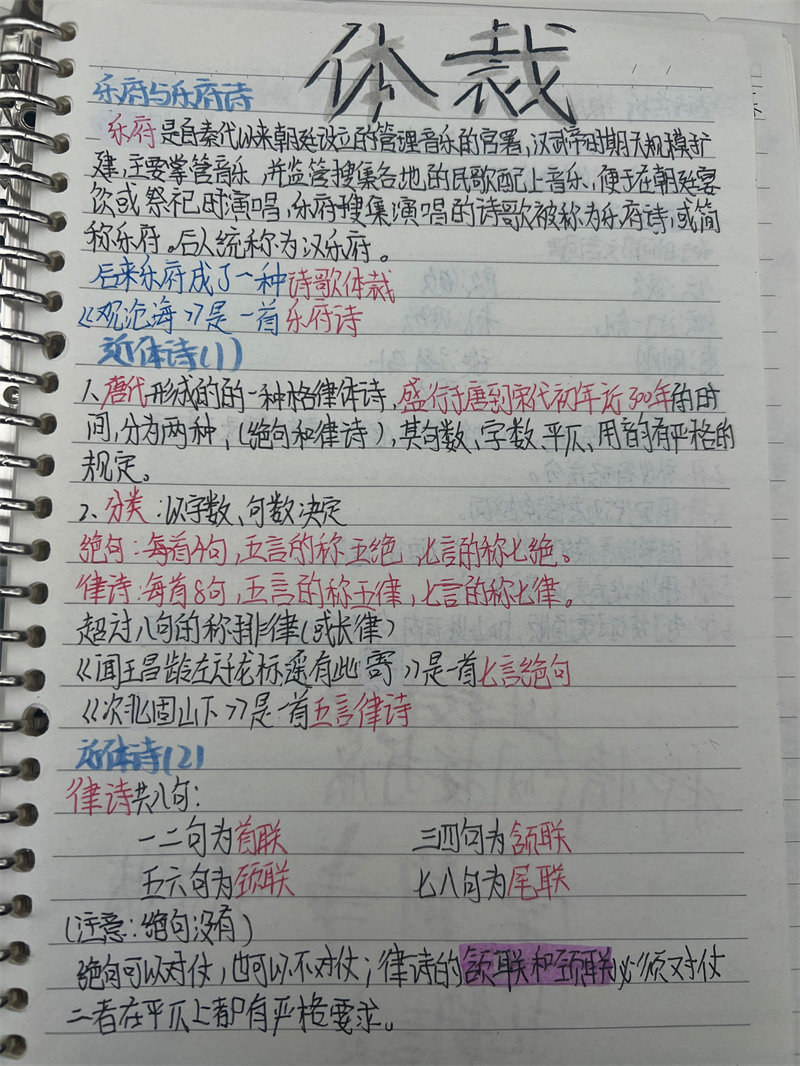 体裁
乐府与乐府诗
乐府是自秦代以来朝廷设立的管理音乐的官署,汉武帝时期大规模扩
建,主要掌管音乐,并监管搜集各地的民歌配上音乐,便于在朝廷宴
饮或祭祀时演唱,乐府搜集演唱的诗歌被称为乐府诗,或简
称乐府。后人统称为汉乐府。
后来乐府成了一种诗歌体裁
《观沧海》是一首乐府诗
近体诗(1)
1、唐代形成的的一种格律体诗,盛行于唐到宋代初年近300年的时
间,分为两种,(绝句和律诗),其句数、字数、平仄、用韵有严格的
规定。
2、分类:以字数、句数决定
绝句:每首4句,五言的称五绝,七言的称七绝。
律诗:每首8句,五言的称五律,七言的称七律。
超过八句的称排律(或长律)
《闻王昌龄左迁龙标遥有此寄》是一首七言绝句
《次北固山下》是一首五言律诗
近体诗(2)
律诗共八句:
一二句为首联 三四句为颔联
五六句为颈联 七八句为尾联
(注意:绝句没有)
绝句可以对仗,也可以不对仗;律诗的颔联和颈联必须对仗
二者在平仄上都有严格要求。